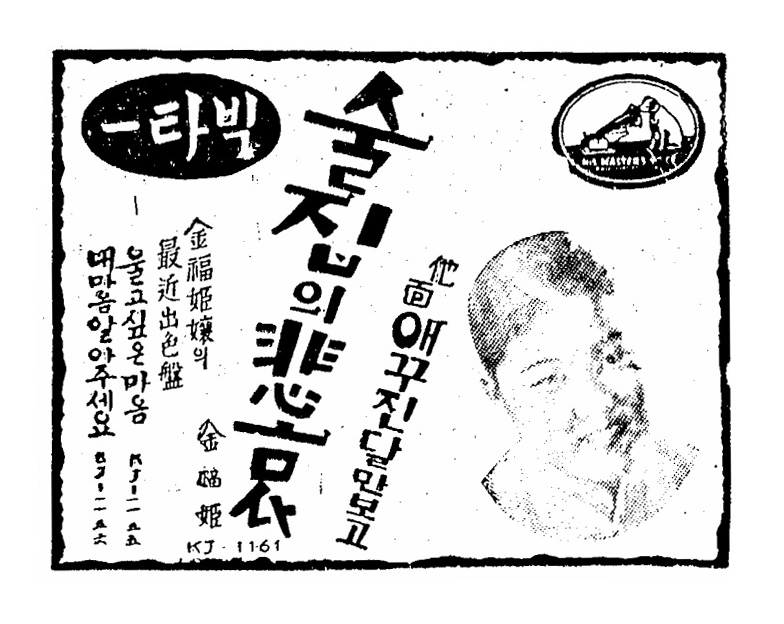 빅타ー
HIS MASTER'S VOICE
술집의悲哀
他面 애꾸진달만보고
金福姬
KJ-1161
金福姬孃의
最近出色盤
울고싶은마음 KJ-一一五五
내마음알아주세요 KJ-一一五六